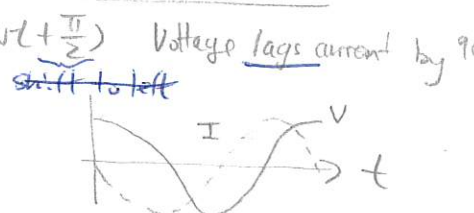 t + π/2) Voltage lags current by
shift to left
I V
t